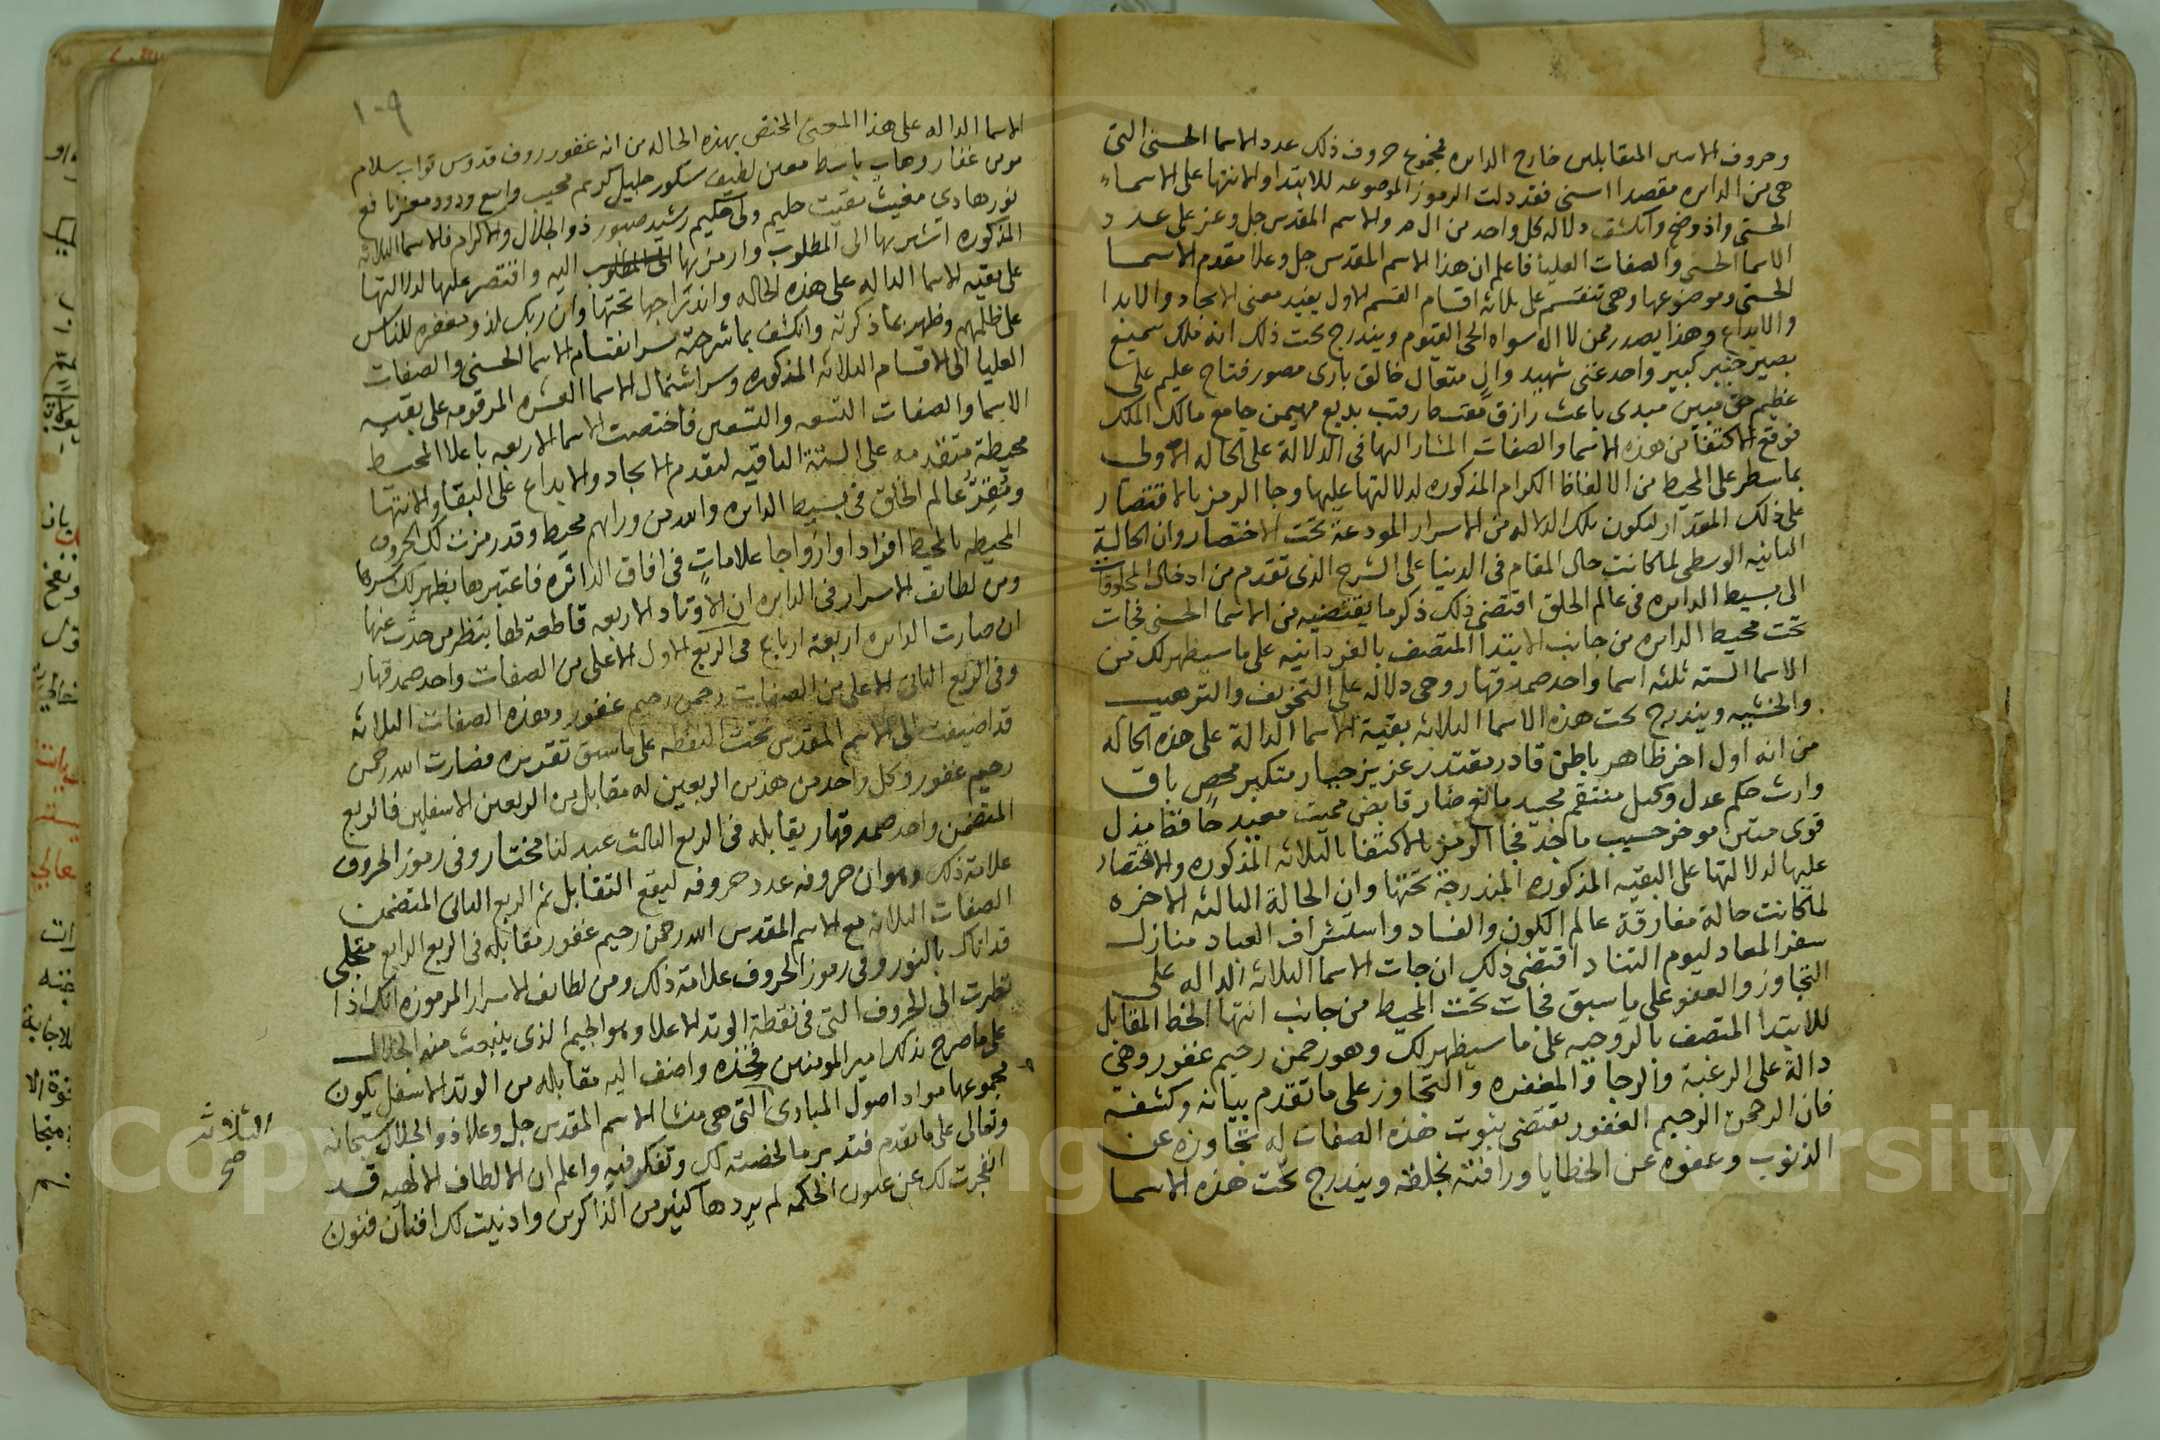 وحروف الاسمين المتقابلين خارج الدايره مجموع حروف ذلك عدد الاسما الحسنى التى
هى من الدايره مقصدا اسنى فقد دلت الرموز الموضوعه للابتدا والانتها على الاسماء
الحسنى واذ وضح وانكشف دلاله كل واحد من ال م ر والاسم المقدس جل وعز على عدد
الاسما الحسنى والصفات العليا فاعلم ان هذا الاسم المقدس جل وعلا مقدم الاسما
الحسنى وموضوعها وهى تنقسم على ثلاثه اقسام القسم الاول يفيد معنى الايجاد والابدا
والابداع وهذا يصدر ممن لا اله سواه الحى القيوم ويندرج تحت ذلك انه ملك سميع
بصير خبير كبير واحد غنى شهيد والٍ متعال خالق بارى مصور فتاح عليم على
عظيم حق مبين مبدى باعث رازق مقسط رقيب بديع مهيمن جامع مالك الملك
فوقع الاكتفا من هذه الاسما والصفات المشار اليها فى الدلالة على الحاله الاولى
بما سطر على المحيط من الالفاظ الكرام المذكوره لدلالتها عليها وجا الرمز بالاقتصار
على ذلك المقدار ليكون تلك الدلاله من الاسرار المودعة تحت الاختصار وان الحالية
الثانيه الوسطى لما كانت حال المقام فى الدنيا على الشرح الذى تقدم من ادخال المخلوقات
الى بسيط الدايره فى عالم الخلق اقتضى ذلك ذكر ما يقتضيه من الاسما الحسنى فجات
تحت محيط الدايره من جانب الابتدا المتصف بالفردانيه على ما سيظهر لك من
الاسما السته ثلثه اسما واحد صمد قهار وهى دلالة على التخويف والترهيب
والخشيه ويندرج تحت هذه الاسما الثلاثه بقية الاسما الدالة على هذه الحاله
من انه اول اخر ظاهر باطن قادر مقتدر عزيز جبار متكبر محصٍ باق
وارث حكم عدل وكيل منتقم مجيد مانع ضار قابض مميت معيد حافظ مذل
قوى متين موخر حسيب ماجد فجا الرمز بالاكتفا بالثلاثه المذكوره والاقتصار
عليها لدلالتها على البقيه المذكوره المندرجة تحتها وان الحالة الثالثه الاخره
لما كانت حالة مفارقة عالم الكون والفساد واستشراف العباد منازل
سفر المعاد ليوم التناد اقتضى ذلك ان جات الاسما الثلاثه الداله على
التجاوز والعفو على ما سبق فجات تحت المحيط من جانب انتها الخط المقابل
للابتدا المتصف بالزوجيه على ما سيظهر لك وهو رحمن رحيم غفور وهى
دالة على الرغبة والرجا والمغفره والتجاوز على ما تقدم بيانه وكشفه
فان الرحمن الرحيم الغفور يقتضى ثبوت هذه الصفات له تجاوزه عن
الذنوب وعفوه عن الخطايا ورافته بخلقه ويندرج تحت هذه الاسما
١٠٩
الاسما الداله على هذا المعنى المختص بهذه الحاله من انه غفور روف قدوس تواب سلام
مومن غفار وهاب باسط معين لطيف شكور جليل كريم مجيب واسع ودود معز نافع
نور هادى مغيث مقيت حليم ولى حكيم رشيد صبور ذو الجلال والاكرام فالاسما الثلاثه
المذكوره اشير بها الى المطلوب وارمز بها الى المطلوب اليه واقتصر عليها لدلالتها
على بقيه الاسما الداله على هذه الحاله واندراجها تحتها وان ربك لذو مغفره للناس
على ظلمهم وظهر بما ذكرته وانكشف بما شرحته سر انقسام الاسما الحسنى والصفات
العليا الى الاقسام الثلاثه المذكوره وسر اشتمال الاسما العشره المرقومه على بقيه
الاسما والصفات التسعه والتسعين فاختصت الاسما الاربعه باعلا المحيط
محيطة متقدمه على الستة الباقيه لتقدم الايجاد والابداع على البقا والانتها
وتقدّر عالم الخلق فى بسيط الدايره والله من ورائهم محيط وقد رمزت لك الحروف
المحيطه بالمحيط افرادا وازواجا علاماتٍ فى افاق الدائره فاعتبرها يظهر لك سرها
ومن لطايف الاسرار فى الدايره ان الاوتاد الاربعه قاطعة لها ينظر من حدّث عنها
ان صارت الدايره اربعة ارباع فى الربع الاول الاعلى من الصفات واحد صمد قهار
وفى الربع الثانى الاعلى من الصفات رحمن رحيم غفور وهذه الصفات الثلاثه
قد اضيفت الى الاسم المقدس تحت النقطه على ما سبق تقديره فصارت الله رحمن
رحيم غفور وكل واحد من هذين الربعين له مقابل من الربعين الاسفلين فالربع
المتضمن واحد صمد قهار يقابله فى الربع الثالث عبد لنا مختار وفى رموز الحروف
علامة ذلك وهو ان حروفه عدد حروفه ليقع التقابل ثم الربع الثانى المتضمن
الصفات الثلاثه مع الاسم المقدس الله رحمن رحيم غفور مقابله فى الربع الرابع متجلى
قد اتاك بالنور وفى رموز الحروف علامة ذلك ومن لطايف الاسرار المرموزه انك اذا
نظرت الى الحروف التى فى نقطة الوتد الاعلا وهو الجيم الذى ينبعث منه الجلال
على ما صرح بذكر امير المومنين فخذه واضف اليه مقابله من الوتد الاسفل يكون
مجموعها مواد اصول المبادى التى هى منشا الاسم المقدس جل وعلا ذو الجلال سبحانه
وتعالى على ما تقدم فتدبر ما لخصته لك وتفكر فيه واعلم ان الالطاف الالهيه قد
انفجرت لك عن عيون الحكمه لم يردها كثير من الذاكرين وادنيت لك افنان فنون
الثلاث
صح
Copyright © King Saud University